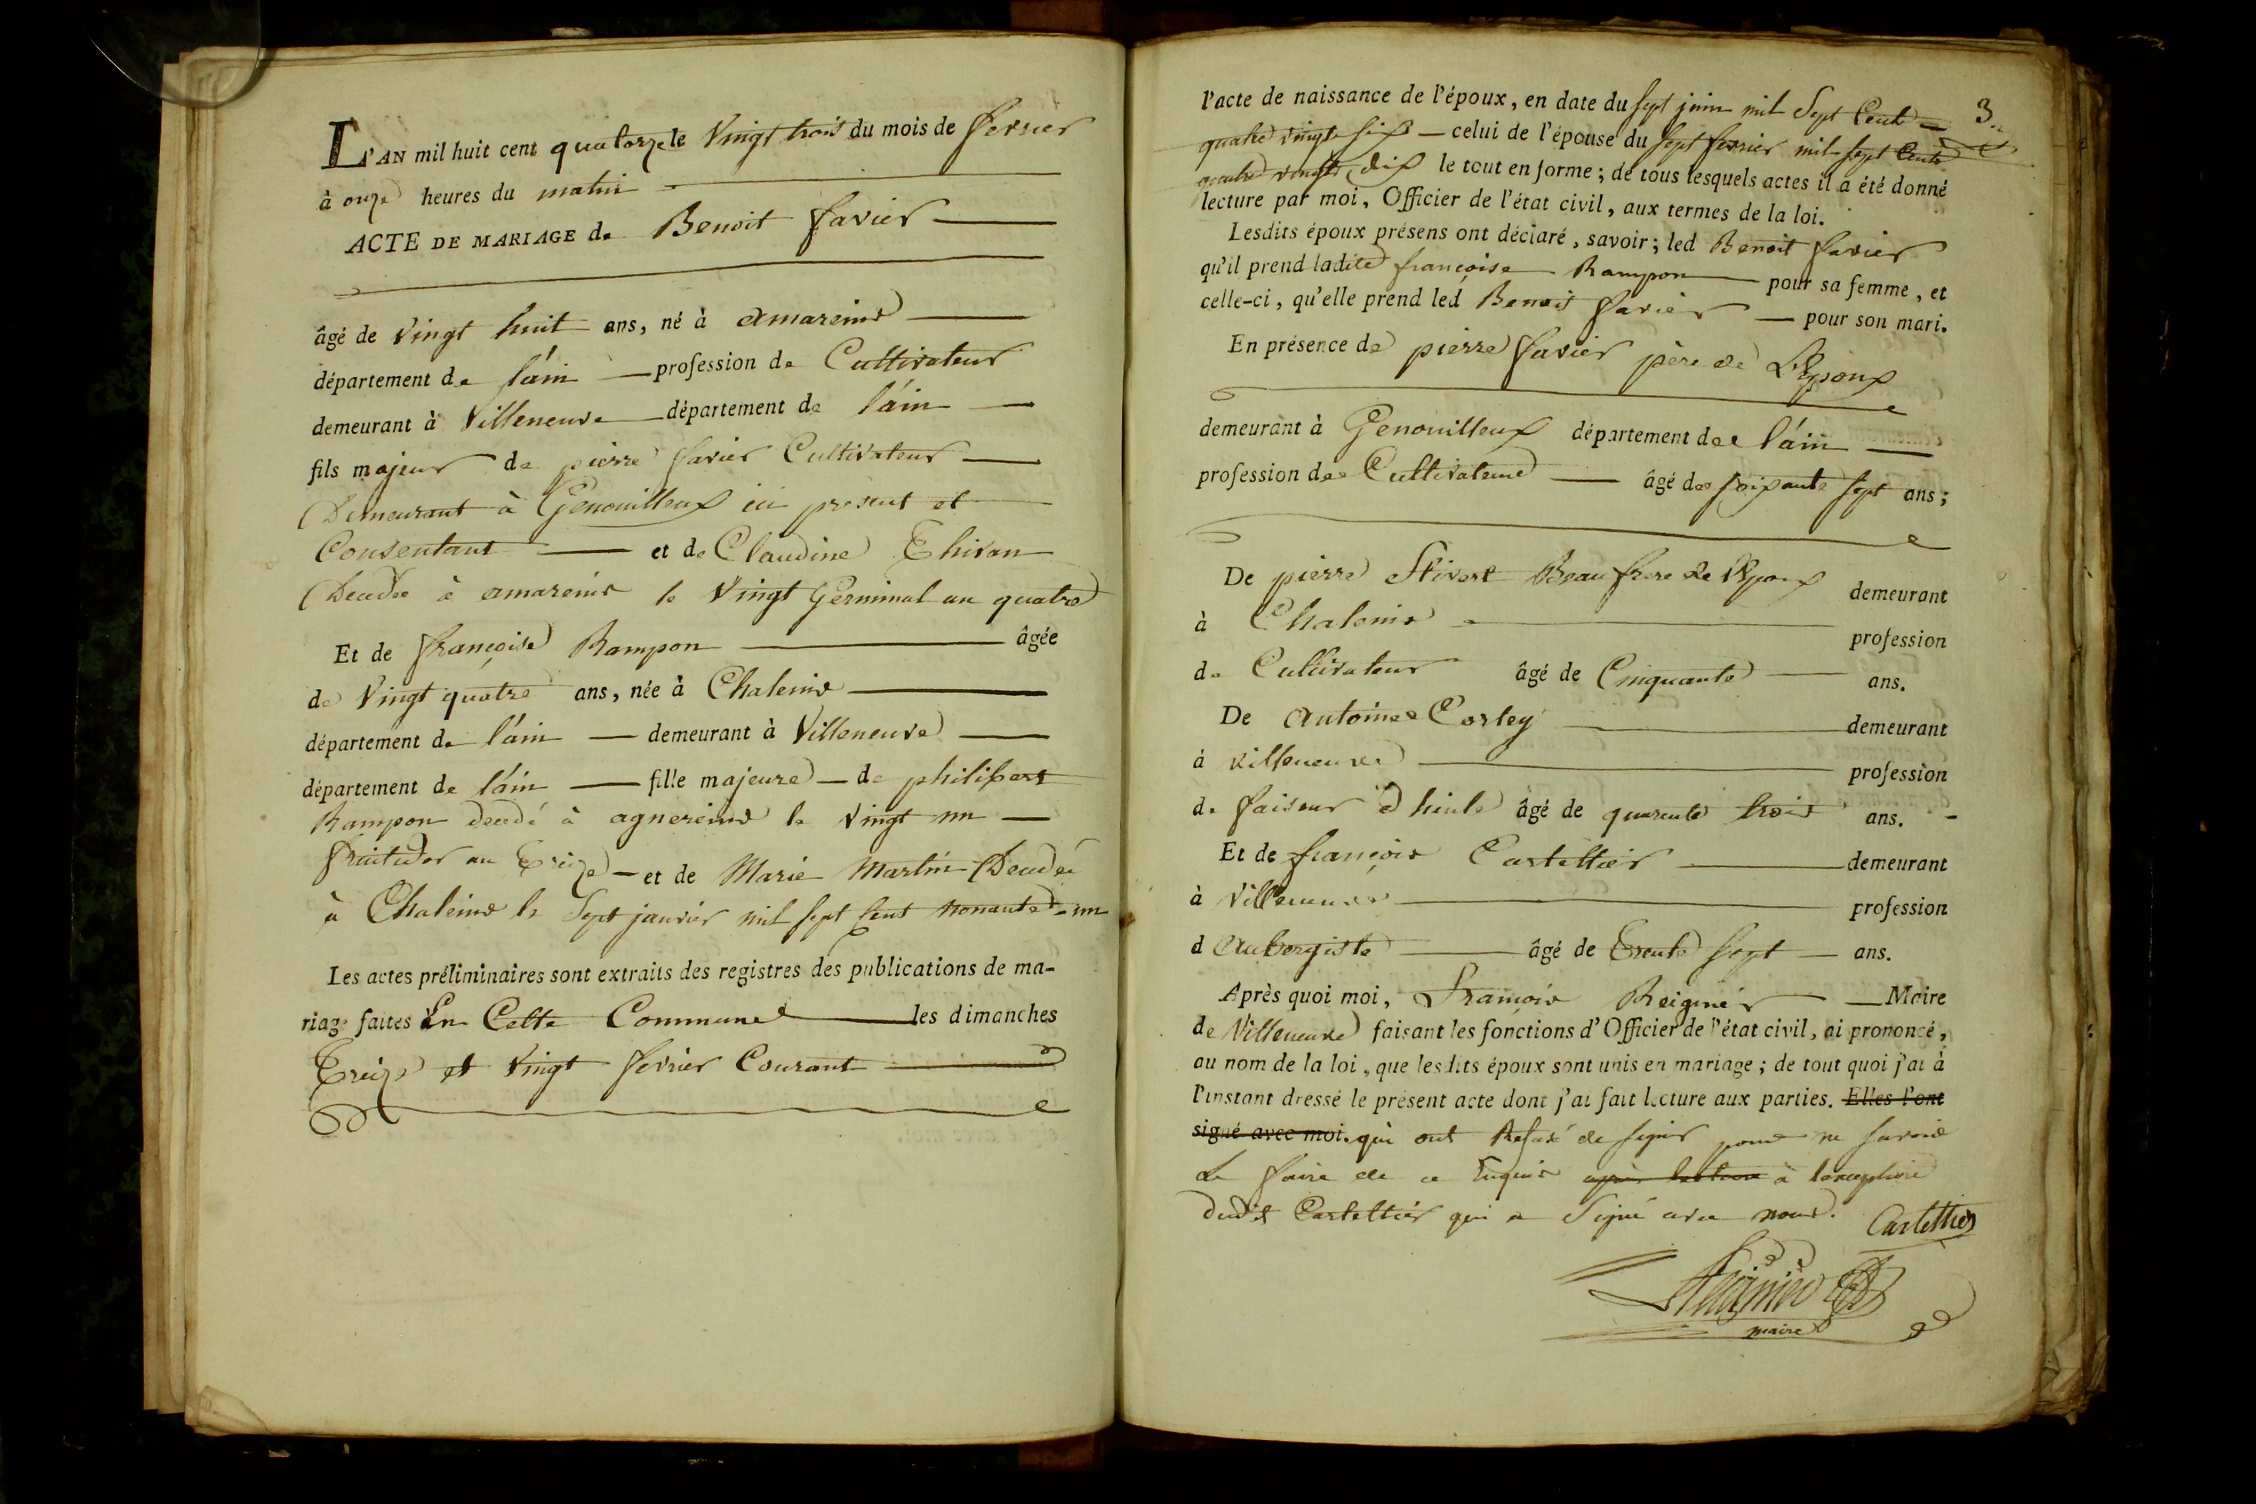 L'AN mil huit cent quatorze le Vingt trois du mois de fevrier
à onze heures du matin
ACTE DE MARIAGE de Benoit favier
âgé de Vingt huit ans, né à amareins
département de l'ain profession de Cultivateur
demeurant à Villeneuve département de l'ain
fils majeur de pierre favier Cultivateur
Demeurant à Genouilleux ici présent et
Consentant et de Claudine Thivan
Decedée à amareins le Vingt Germinal an quatre
Et de françoise Rampon âgée
de Vingt quatre ans, née à Chaleins
département de l'ain demeurant à Villeneuve
département de l'ain fille majeure de philibert
Rampon decedé à agnereins le Vingt un
fruitidor an Treize et de Marie Martin Decedée
à Chaleins le Sept janvier mil sept Cent nonante-un
Les actes préliminaires sont extraits des registres des publications de ma-
riage faites En Cette Commune les dimanches
Treize et Vingt fevrier Courant
3
l'acte de naissance de l'époux, en date du sept juin mil Sept Cent
quatre vingt six celui de l'épouse du sept fevrier mil sept Cent
quatre vingts dix le tout en forme; de tous lesquels actes il a été donné
lecture par moi, Officier de l'état civil, aux termes de la loi.
Lesdits époux présens ont déclaré, savoir; led Benoit favier
qu'il prend ladite françoise Rampon pour sa femme, et
celle-ci, qu'elle prend led Benoit favier pour son mari.
En présence de pierre favier père de L'Epoux
demeurant à Genouilleux département de l'ain
profession de Cultivateur âgé de soixante sept ans;
De pierre Beaufrere de l'Epoux demeurant
à Chaleins profession
de Cultivateur âgé de Cinquante ans.
De antoine Corley demeurant
à villeneuve profession
de faiseur d'huile âgé de quarente trois ans.
Et de françois Cartellier demeurant
à Villeneuve profession
d aubergiste âgé de Trente sept ans.
Après quoi moi, François Reignier Maire
de Villeneuve faisant les fonctions d'Officier de l'état civil, ai prononcé,
au nom de la loi, que lesdits époux sont unis en mariage; de tout quoi j'ai à
l'instant dressé le présent acte dont j'ai fait lecture aux parties. Elles l'ont
signé avec moi. qui ont Refusé de signer pour ne savoir
Le faire de ce Enquis après lecture à lexception
dudit Cartellier qui a Signé avec nous. Cartellier
Reignier
maire